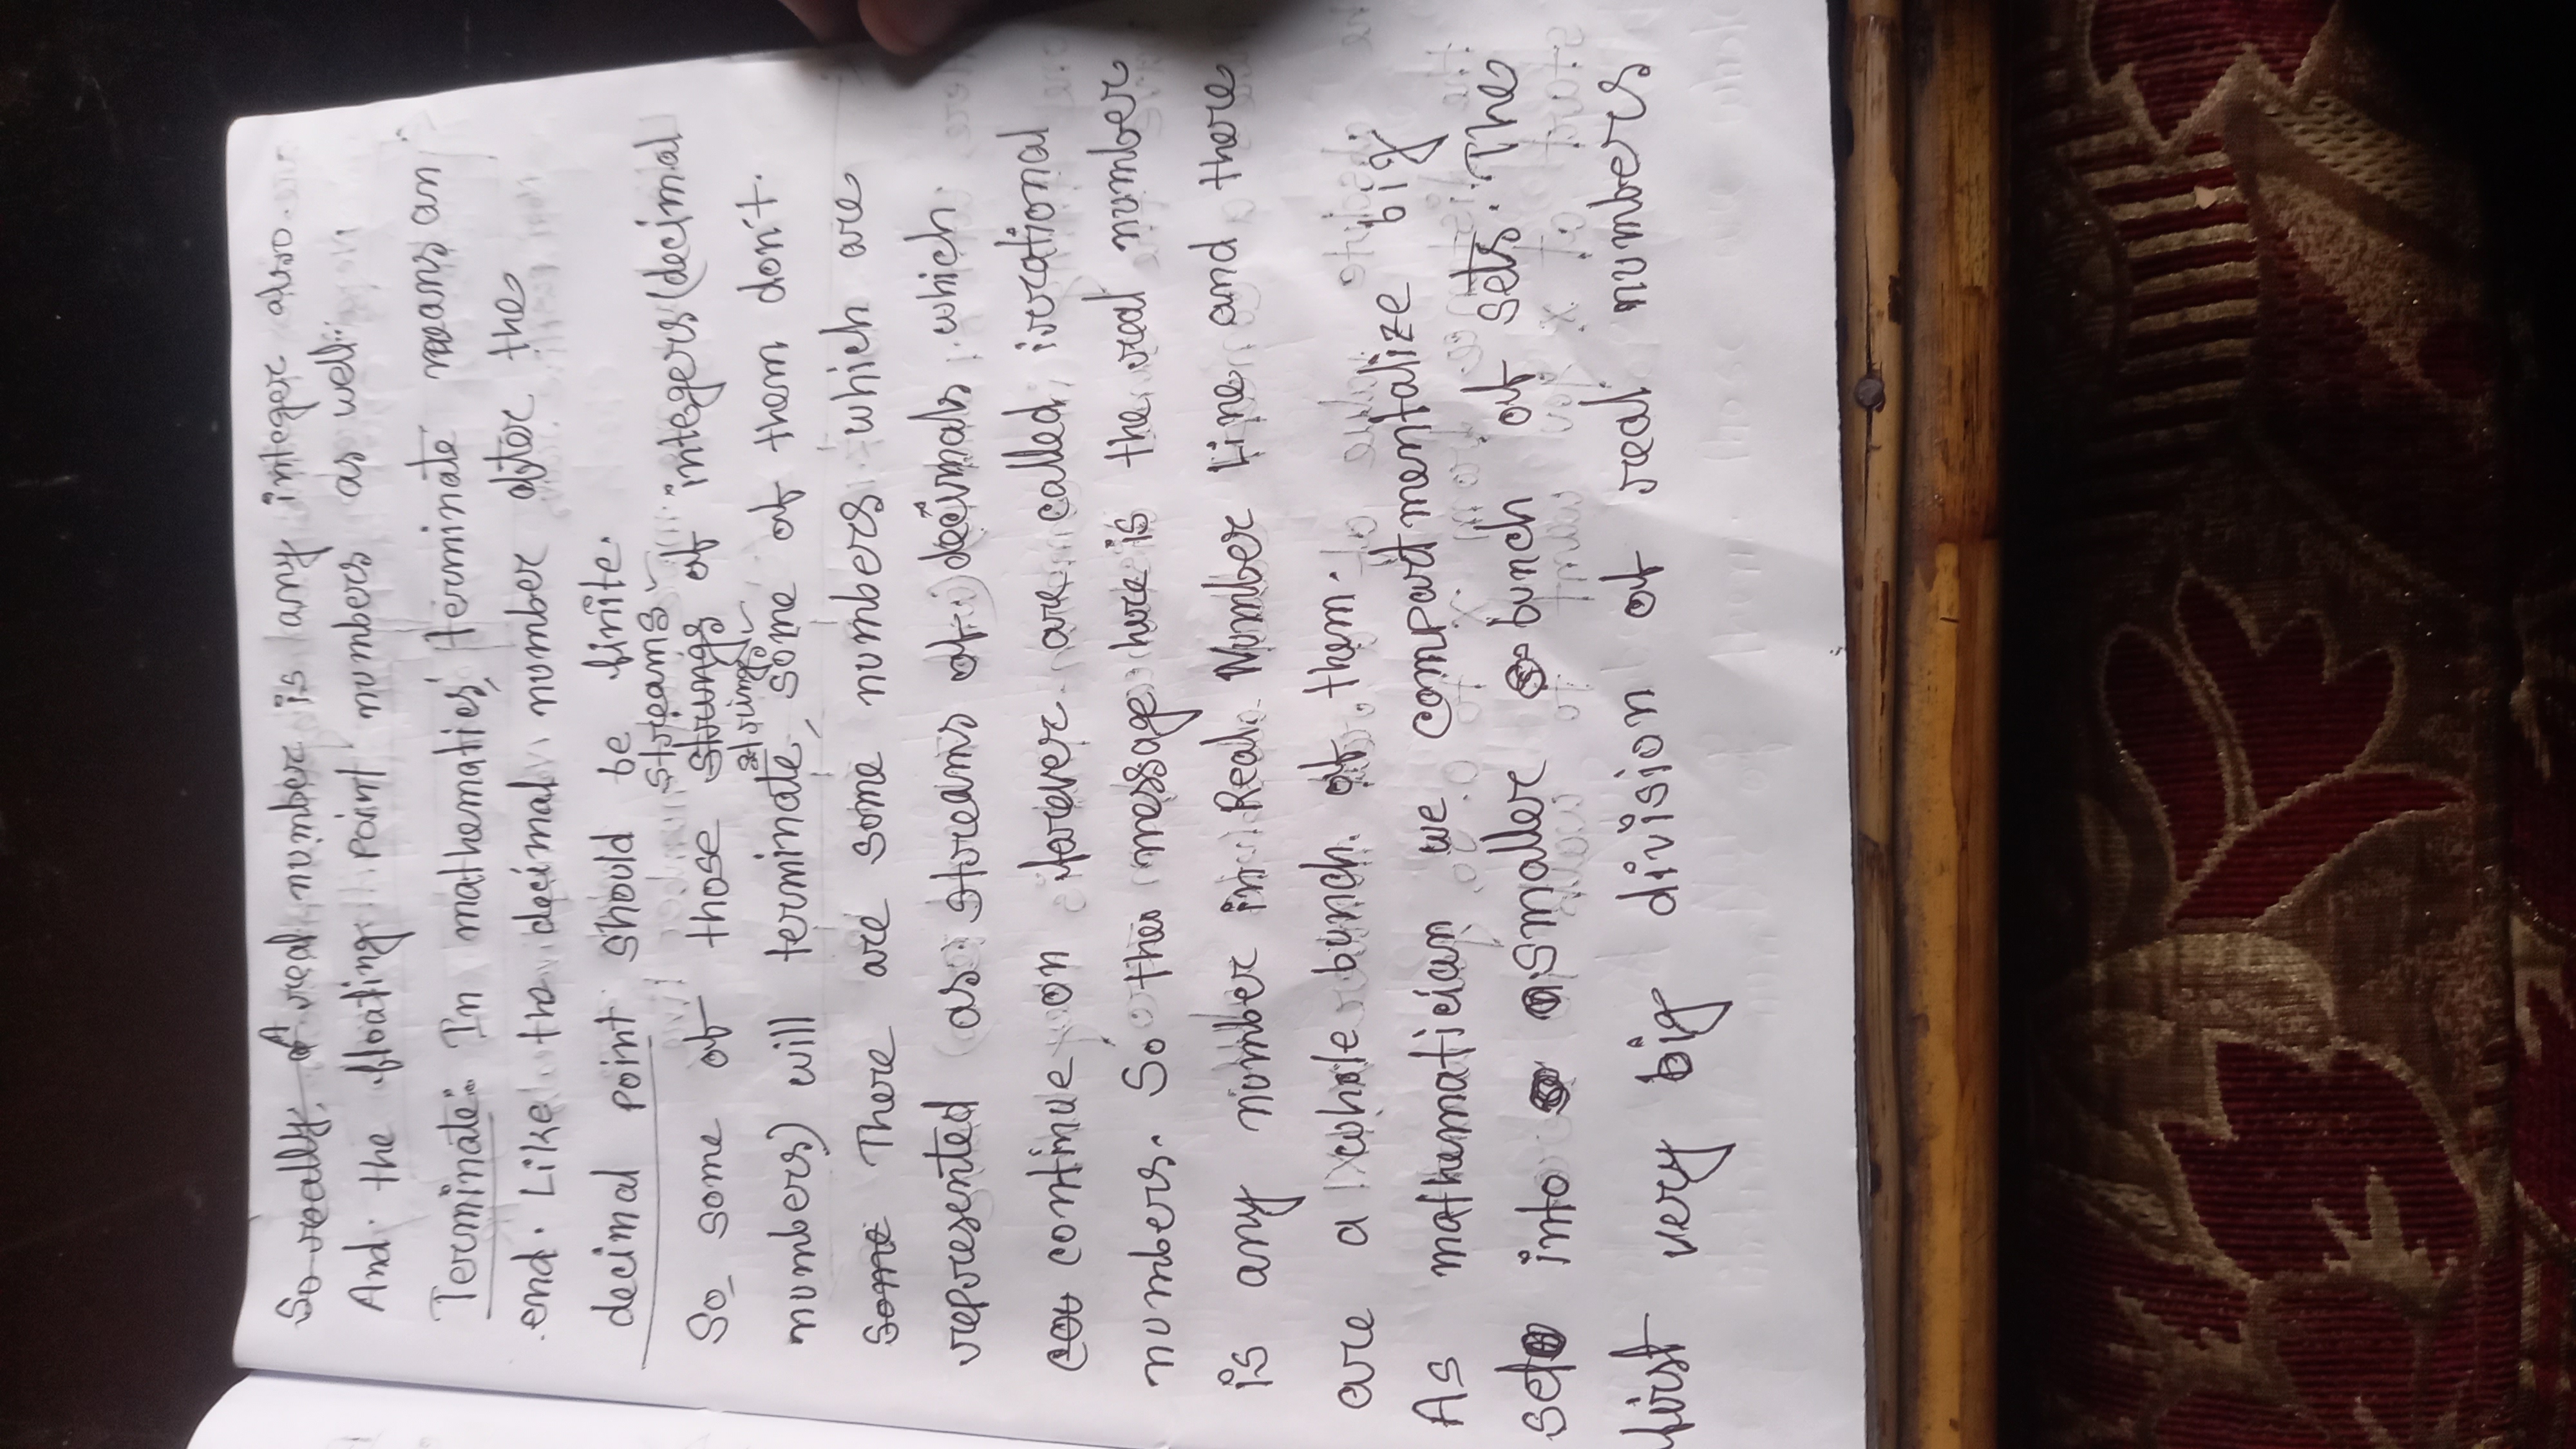 So really, A real number is any integer also.
And the floating point numbers as well.
Terminate: In mathematics, terminate means an
end. Like the decimal number after the
decimal point should be finite.
streams
So some of those strings of integers (decimal
strings
numbers) will terminate, some of them don't.
some There are some numbers which are
represented as streams of decimals which
cou continue on forever are called irrational
numbers. So the message here is the real number
is any number in Real Number Line and there
are a whole bunch of them.
As mathematician we compartmentalize big
set into a smaller bunch of sets. The
first very big division of real numbers